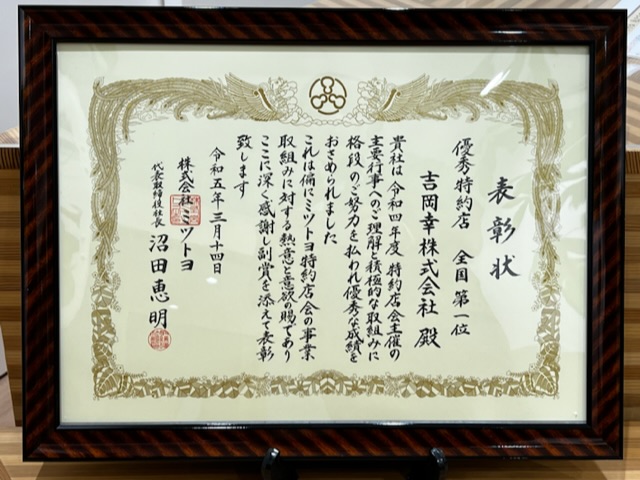 表彰状
優秀特約店 全国 第一位
吉岡幸株式会社 殿
貴社は 令和四年度 特約店会主催の
主要行事へのご理解と積極的な取組みに
格段のご努力を払われ優秀な成績を
おさめられました
これは偏にミツトヨ特約店会の事業
取組みに対する熱意と意欲の賜であり
ここに深く感謝し副賞を添えて表彰
致します
令和五年三月十四日
株式会社ミツトヨ
代表取締役社長 沼田恵明